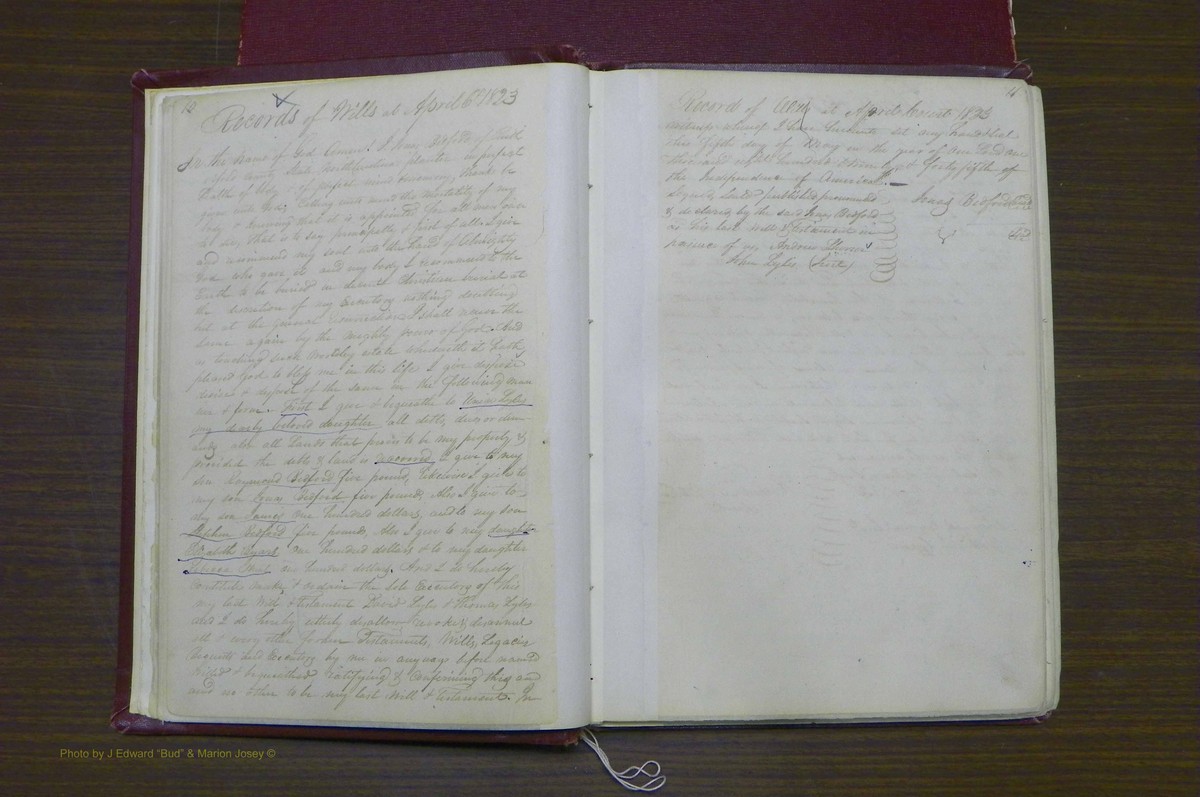 10
Records of Wills at April 6th 1823
In the Name of God Amen. I Isaac Bedford of Rich
County State North Carolina planter in perfect
health of body & of perfect mind & memory, thanks be
given unto God; Calling unto mind the mortality of my
body & knowing that it is appointed for all men once
to die, that is to say principally & first of all I give
and recommend my soul into the hand of Almighty
God who gave it and my body I recommend to the
Earth to be buried in decent Christian burial at
the discretion of my Executors nothing doubting
but at the general resurrection I shall receive the
same again by the mighty power of God. And
as touching such worldly estate wherewith it hath
pleased God to bless me in this life I give
devise & dispose of the same in the following man
ner & form. First I give & bequeath to Lyles
my dearly beloved daughter all debts, dues or dem
ands also all Lands that proves to be my property &
provided the debts & land is recovered I give to my
son Raymond Bedford five pound, Likewise I give to
my son Bedford five pound Also I give to
my son James one hundred dollars, and to my son
Stephen Bedford five pounds Also I give to my daughter
one hundred dollars & to my daughter
one hundred dollars. And I do hereby
constitute make & ordain the sole Executors of this
my last Will & Testament David Lyles & Thomas Lyles
and I do hereby utterly disallow revoke & disannul
all & every other former Testaments, Wills, Legacies
bequests and Executors by me in anyways before named
willed & bequeathed Ratifying & Confirming this and
and no other to be my last Will & Testament. In
11
Record of Wills at April Court 1823
witness whereof I have hereunto set my hand & seal
this fifth day of May in the year of our Lord one
thousand eight hundred & forty fifth of
the Independence of America.
Signed, sealed published pronounced
& declared by the said Isaac Bedford
as his last will & Testament in
presence of us, Andrew
John Lyles (Jurat)
Isaac Bedford
Photo by J Edward "Bud" & Marion Josey ©